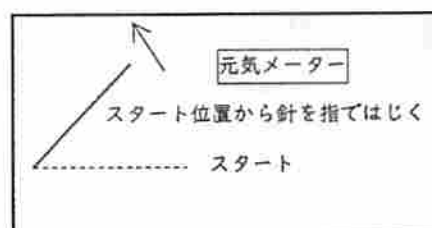 元気メーター
スタート位置から針を指ではじく
スタート